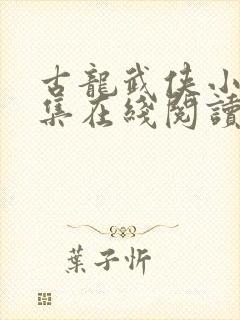 古龍武俠小
集在綫閱讀
葉子忻